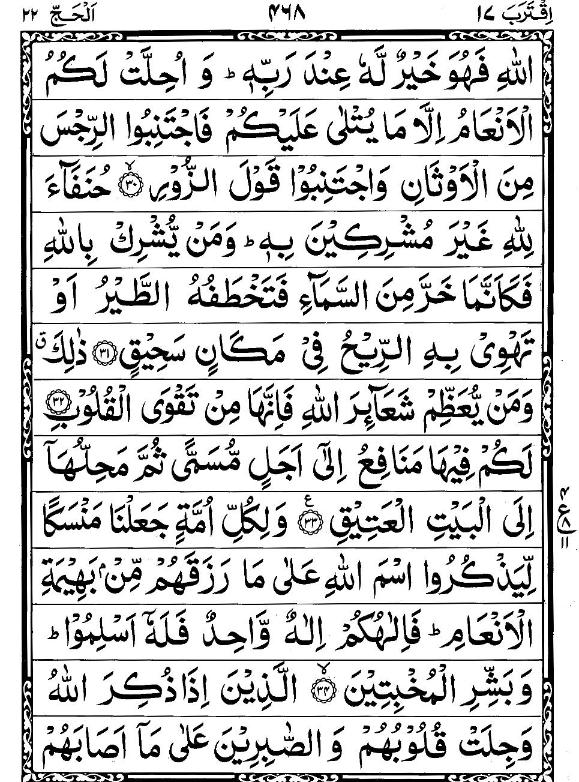 اِقْتَرَبَ ١٧ ٤٦٨ اَلْحَجّ ٢٢
اللّٰهِ فَهُوَ خَيْرٌ لَّهٗ عِنْدَ رَبِّهٖ ؕ وَ اُحِلَّتْ لَكُمُ
الْاَنْعَامُ اِلَّا مَا يُتْلٰى عَلَيْكُمْ فَاجْتَنِبُوا الرِّجْسَ
مِنَ الْاَوْثَانِ وَاجْتَنِبُوْا قَوْلَ الزُّوْرِ ۙ﴿٣٠﴾ حُنَفَآءَ
لِلّٰهِ غَيْرَ مُشْرِكِيْنَ بِهٖ ؕ وَمَنْ يُّشْرِكْ بِاللّٰهِ
فَكَاَنَّمَا خَرَّ مِنَ السَّمَآءِ فَتَخْطَفُهُ الطَّيْرُ اَوْ
تَهْوِيْ بِهِ الرِّيْحُ فِيْ مَكَانٍ سَحِيْقٍ ﴿٣١﴾ ذٰلِكَ ۗ
وَمَنْ يُّعَظِّمْ شَعَآئِرَ اللّٰهِ فَاِنَّهَا مِنْ تَقْوَى الْقُلُوْبِ ﴿٣٢﴾
لَكُمْ فِيْهَا مَنَافِعُ اِلٰٓى اَجَلٍ مُّسَمًّى ثُمَّ مَحِلُّهَاۤ
اِلَى الْبَيْتِ الْعَتِيْقِ ﴿٣٣﴾ ع وَلِكُلِّ اُمَّةٍ جَعَلْنَا مَنْسَكًا
٤ ع ٨ ١١
لِّيَذْكُرُوا اسْمَ اللّٰهِ عَلٰى مَا رَزَقَهُمْ مِّنْۢ بَهِيْمَةِ
الْاَنْعَامِ ؕ فَاِلٰهُكُمْ اِلٰهٌ وَّاحِدٌ فَلَهٗۤ اَسْلِمُوْا ؕ
وَ بَشِّرِ الْمُخْبِتِيْنَ ۙ﴿٣٤﴾ الَّذِيْنَ اِذَا ذُكِرَ اللّٰهُ
وَجِلَتْ قُلُوْبُهُمْ وَ الصّٰبِرِيْنَ عَلٰى مَاۤ اَصَابَهُمْ